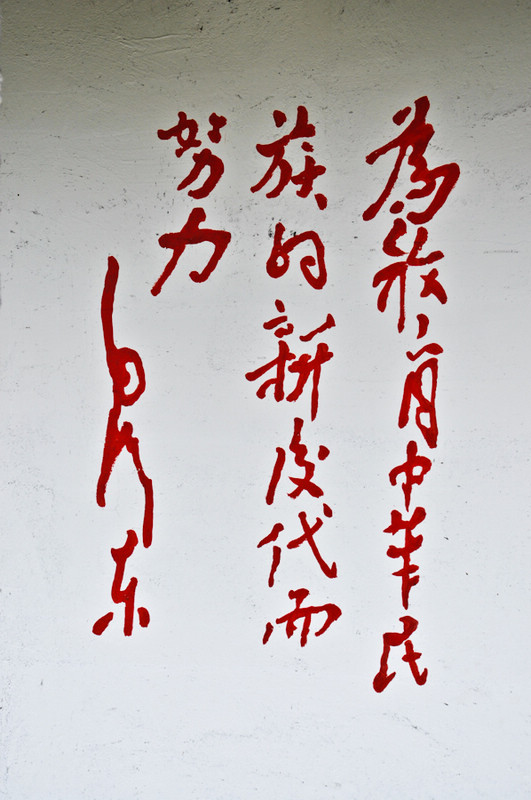 為教育中華民
族的新後代而
努力
毛泽东